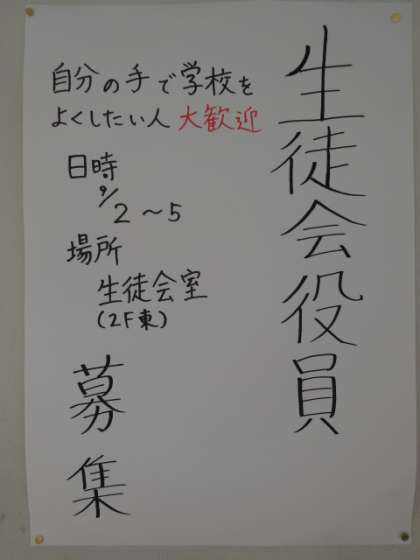 生徒会役員
自分の手で学校を
よくしたい人 大歓迎
日時
9/2~5
場所
生徒会室
(2F東)
募集